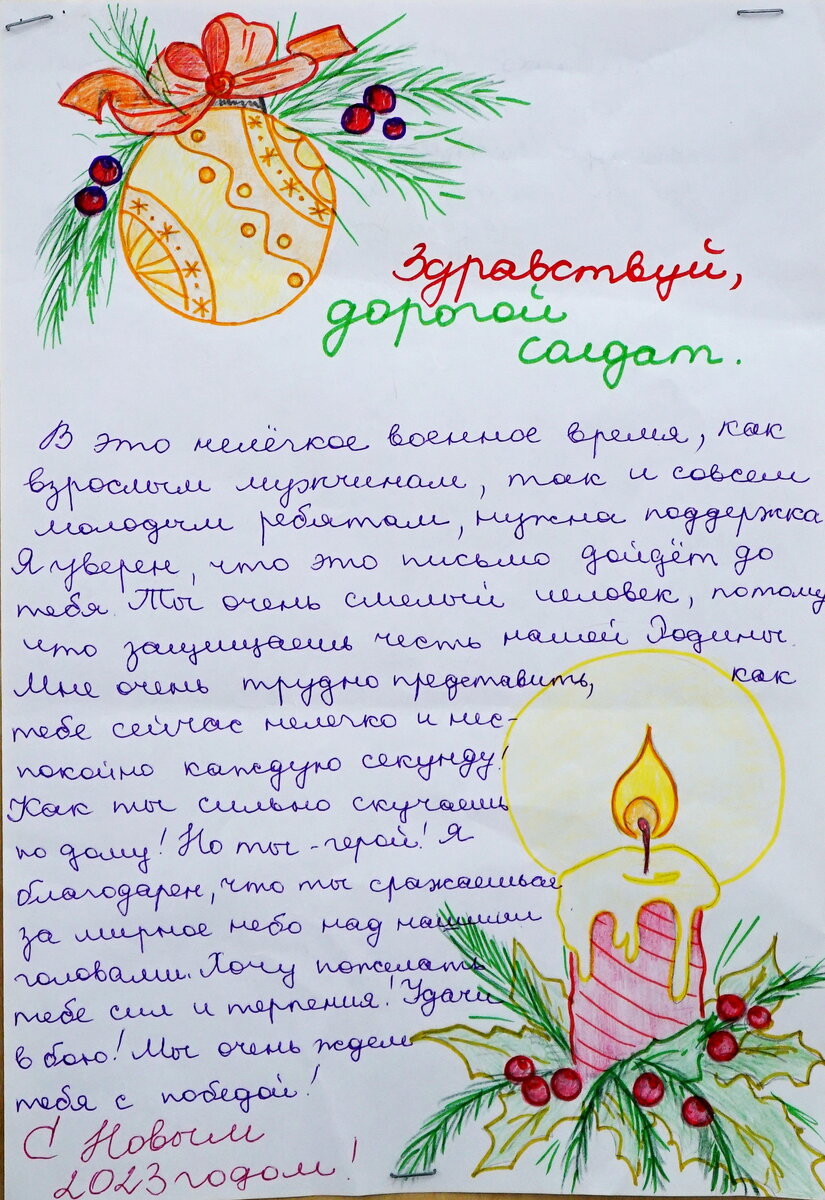 Здравствуй,
дорогой
солдат.
В это нелёгкое военное время, как
взрослым мужчинам, так и совсем
молодым ребятам, нужна поддержка
Я уверен, что это письмо дойдёт до
тебя. Ты очень смелый человек, потому
что защищаешь честь нашей Родины.
Мне очень трудно представить, как
тебе сейчас нелегко и нес-
покойно каждую секунду!
Как ты сильно скучаешь
по дому! Но ты - герой! Я
благодарен, что ты сражаешься
за мирное небо над нашими
головами. Хочу пожелать
тебе сил и терпения! Удачи
в бою! Мы очень ждем
тебя с победой!
С Новым
2023 годом!